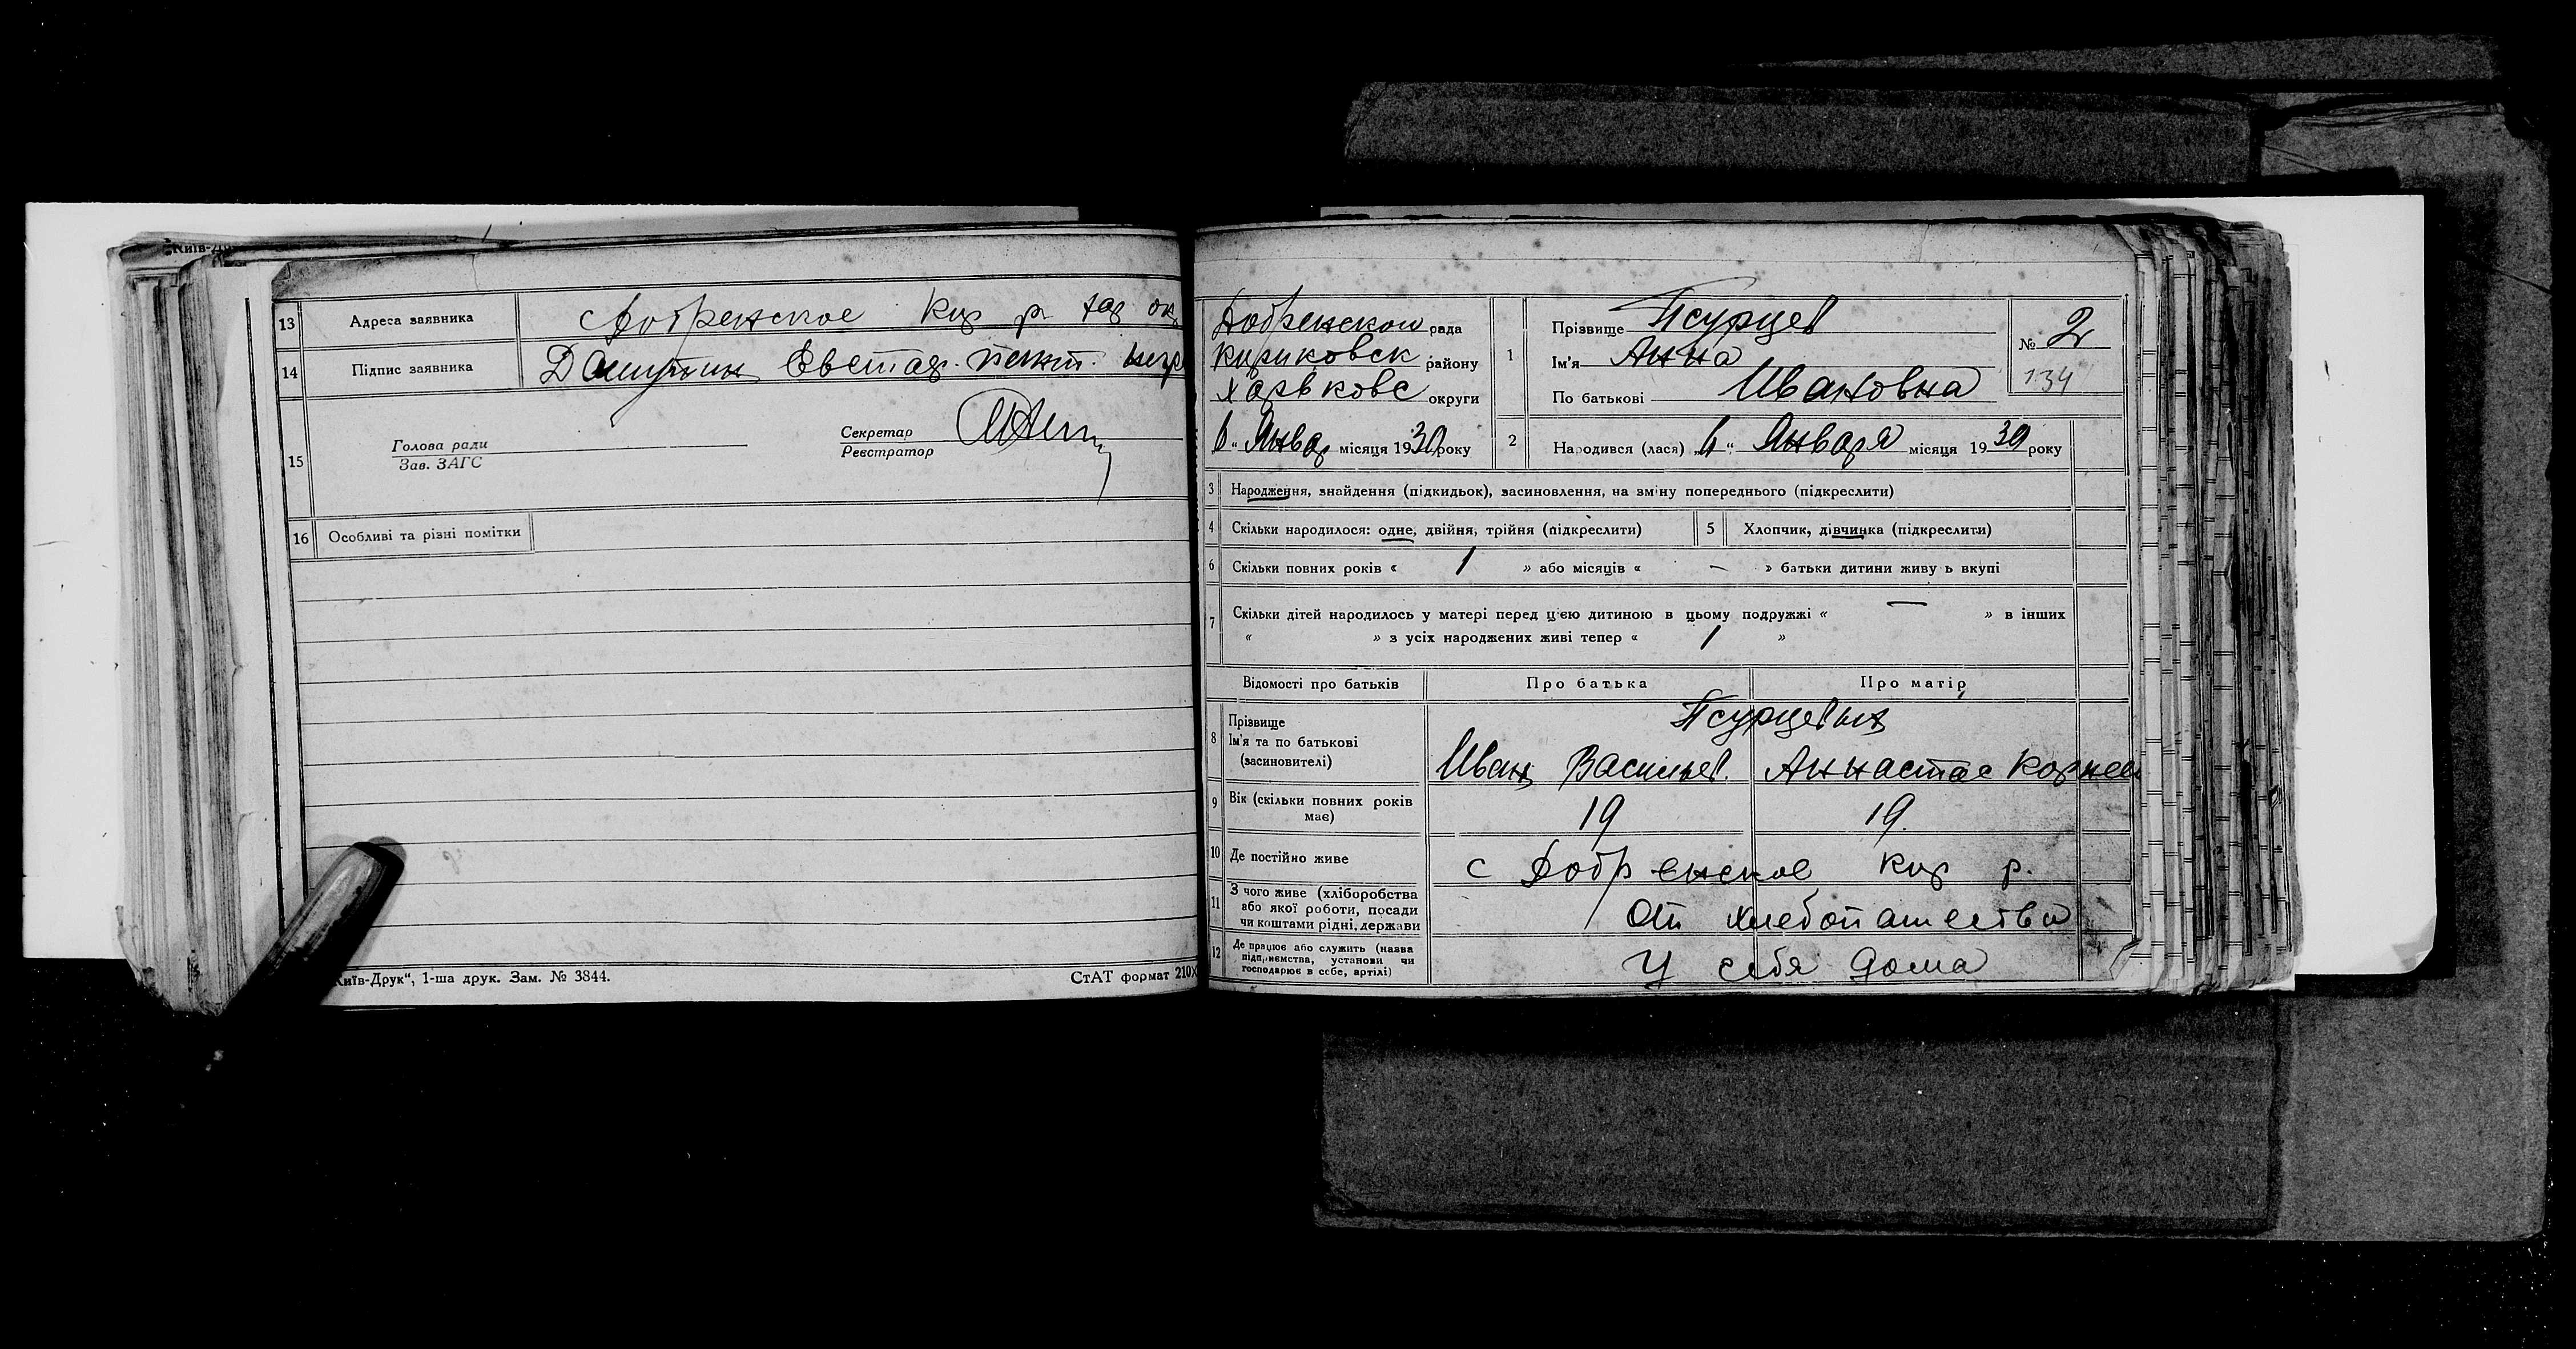 Київ-Др
13 Адреса заявника с Добренское Кир р Хар ок
14 Підпис заявника Евстаф. негр
15 Голова ради
Зав. ЗАГС
Секретар
Реєстратор
16 Особливі та різні помітки
Київ-Друк“, 1-ша друк. Зам. № 3844.
СтАТ формат 210X
Добренской рада
Кириковск району
Харьковс округи
6 “ Январ місяця 1930 року
1 Прізвище Псурцев
Ім'я Анна
По батькові Ивановна
№ 2
134
2 Народився (лася) „6“ Января місяця 1930 року
3 Народження, знайдення (підкидьок), засиновлення, на зміну попереднього (підкреслити)
4 Скільки народилося: одне, двійня, трійня (підкреслити)
5 Хлопчик, дівчинка (підкреслити)
6 Скільки повних років « 1 » або місяців « — » батьки дитини живу ь вкупі
7 Скільки дітей народилось у матері перед цією дитиною в цьому подружжі « — » в інших
« » з усіх народжених живі тепер « 1 »
Відомості про батьків Про батька Про матір
8 Прізвище
Ім'я та по батькові
(засиновителі)
Псурцевых
Иван Васильев. Аннастас Корнее
9 Вік (скільки повних років
має)
19 19.
10 Де постійно живе с Добренское Кир р.
11 З чого живе (хліборобства
або якої роботи, посади
чи коштами рідні, держави
От хлебопашества
12 Де працює або служить (назва
підприємства, установи чи
господарює в себе, артілі)
У себя дома